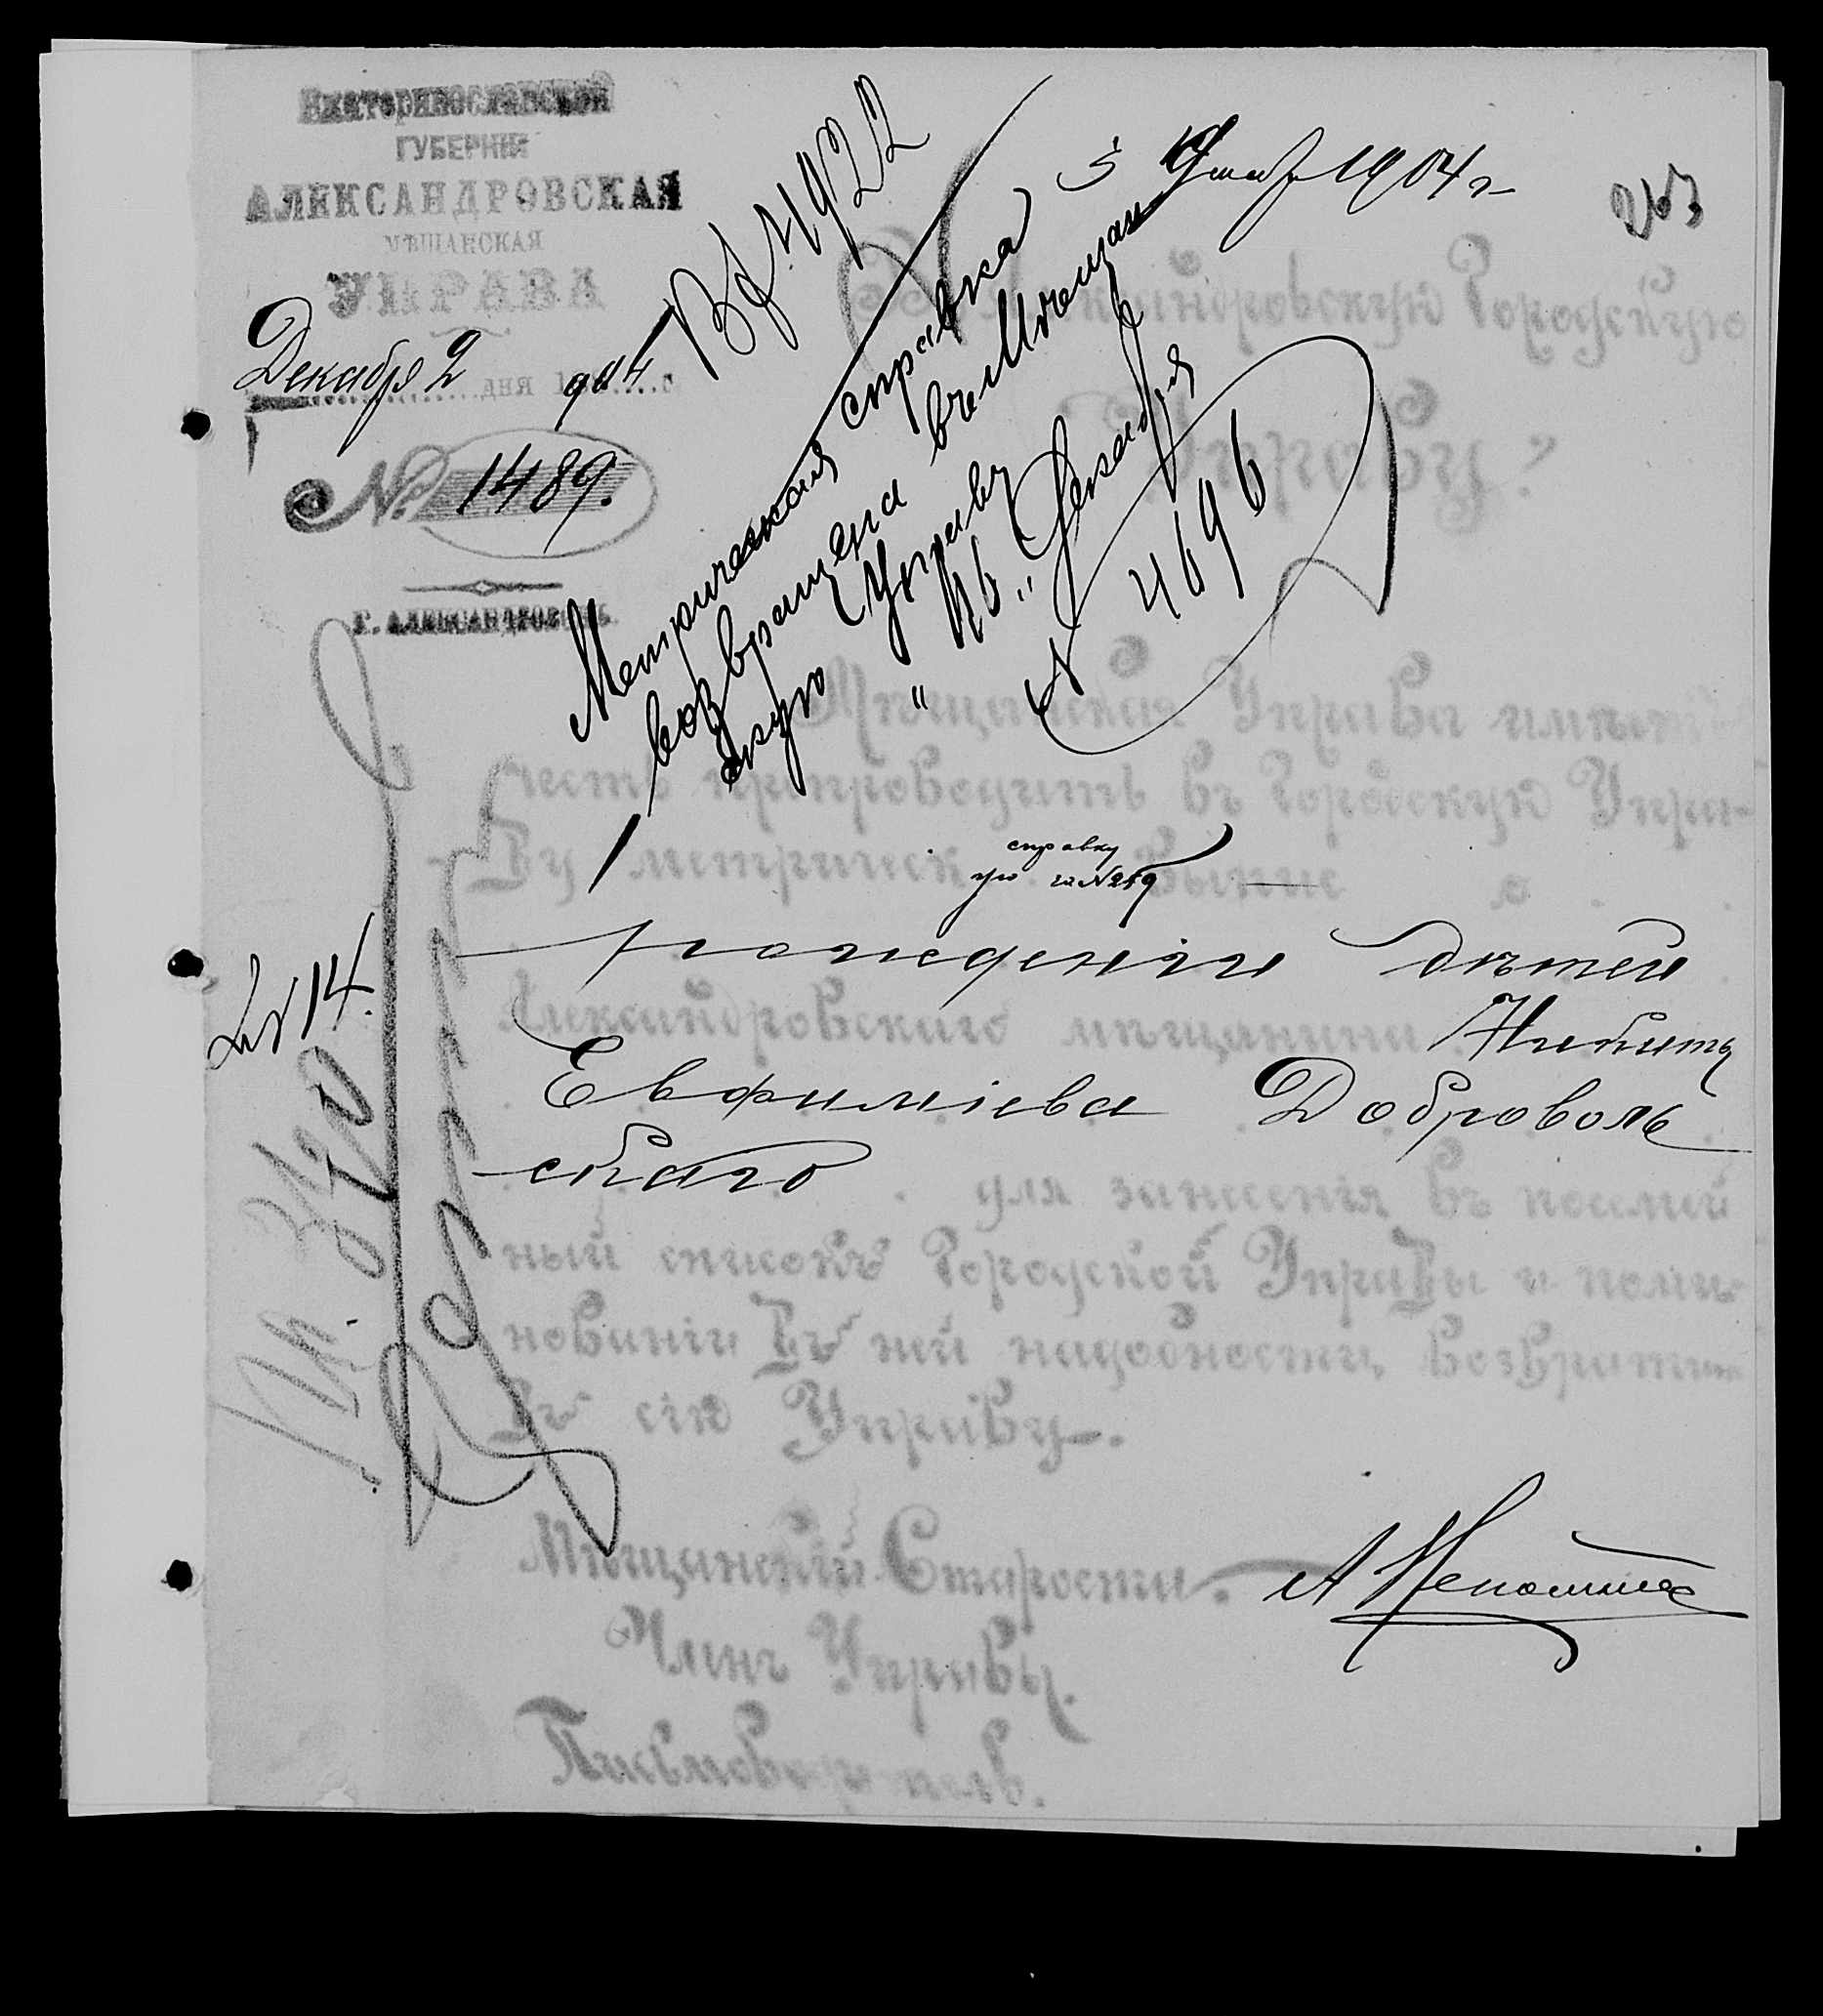 Екатеринославской
ГУБЕРНІИ
АЛЕКСАНДРОВСКАЯ
МѢЩАНСКАЯ
УПРАВА
Декабря 2 дня 1904 г.
№ 1489.
Г. АЛЕКСАНДРОВСКЪ.
4922
5 1904 г
Въ Александровскую Городскую
Управу.
Метрическая справка
возвращена въ Мѣщан
скую Управу
" 16 " Декабря
№ 4696
Мѣщанская Управа имѣетъ
честь препроводить въ Городскую Упра-
ву метрическ справку
ую за № 259
о
рожденіи дѣтей
Александровскаго мѣщанина Никиты
Евфиміева Доброволь
скаго
для занесенія въ посемей
ный списокъ Городской Управы и по мин
нованіи въ ней надобности, возвратить
въ сію Управу.
№ 14.
Мѣщанскій Староста.
Членъ Управы.
Письмоводитель.